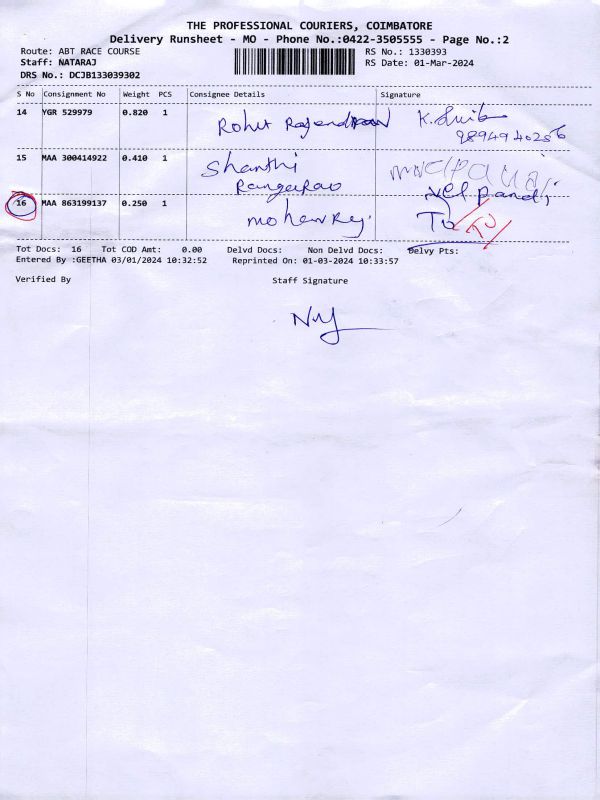 THE PROFESSIONAL COURIERS, COIMBATORE
Delivery Runsheet - MO - Phone No.:0422-3505555 - Page No.:2
Route: ABT RACE COURSE RS No.: 1330393
Staff: NATARAJ RS Date: 01-Mar-2024
DRS No.: DCJB133039302
S No Consignment No Weight PCS Consignee Details Signature
14 YGR 529979 0.820 1 Rohit Rajendran
9894940256
15 MAA 300414922 0.410 1 Shanthi
RangaRao velpandi
16 MAA 863199137 0.250 1 To
Tot Docs: 16 Tot COD Amt: 0.00 Delvd Docs: Non Delvd Docs: Delvy Pts:
Entered By :GEETHA 03/01/2024 10:32:52 Reprinted On: 01-03-2024 10:33:57
Verified By Staff Signature